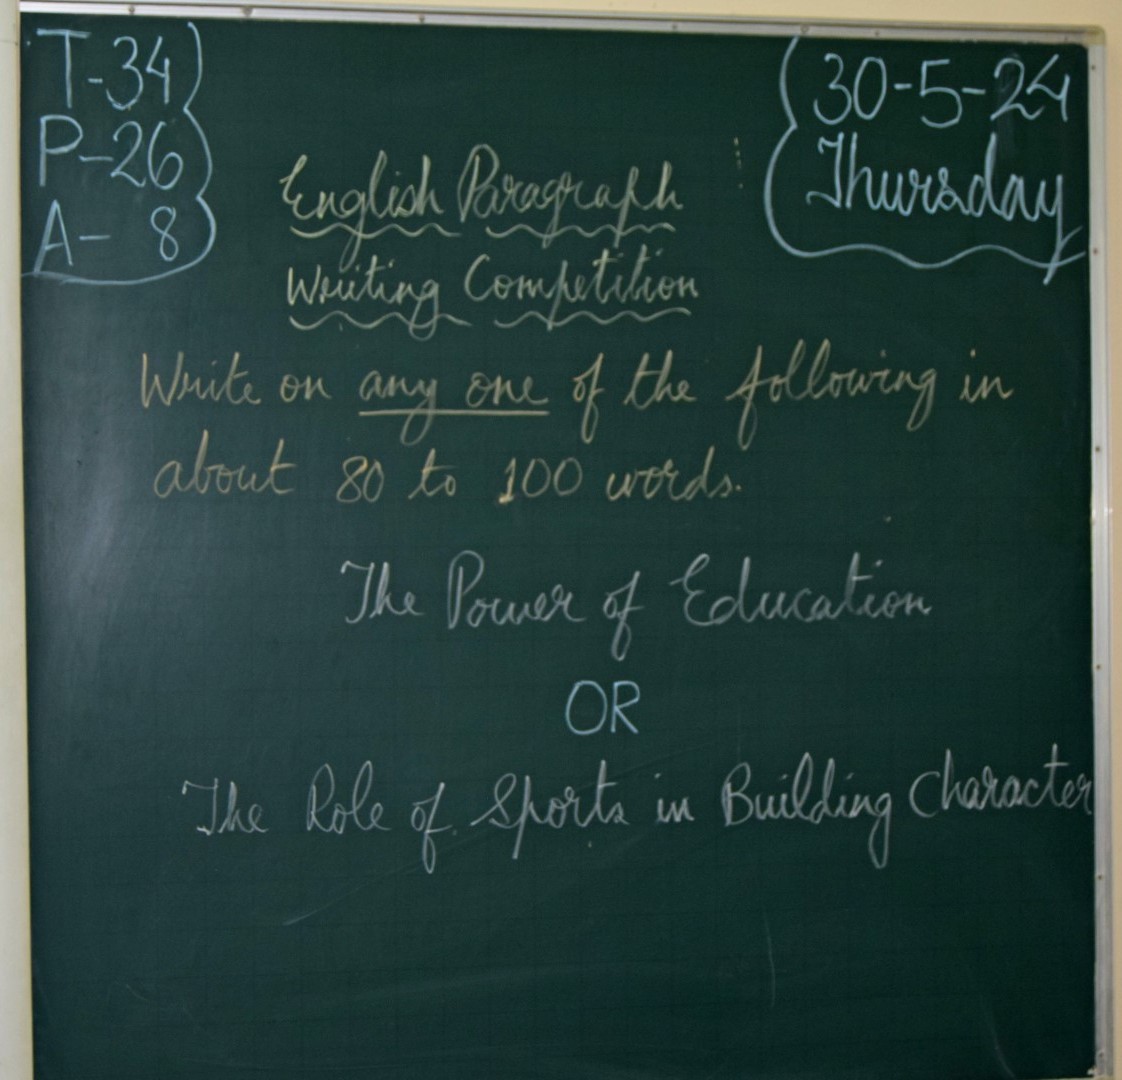 T-34
P-26
A- 8
30-5-24
Thursday
English Paragraph
Writing Competition
Write on any one of the following in
about 80 to 100 words.
The Power of Education
OR
The Role of Sports in Building Character